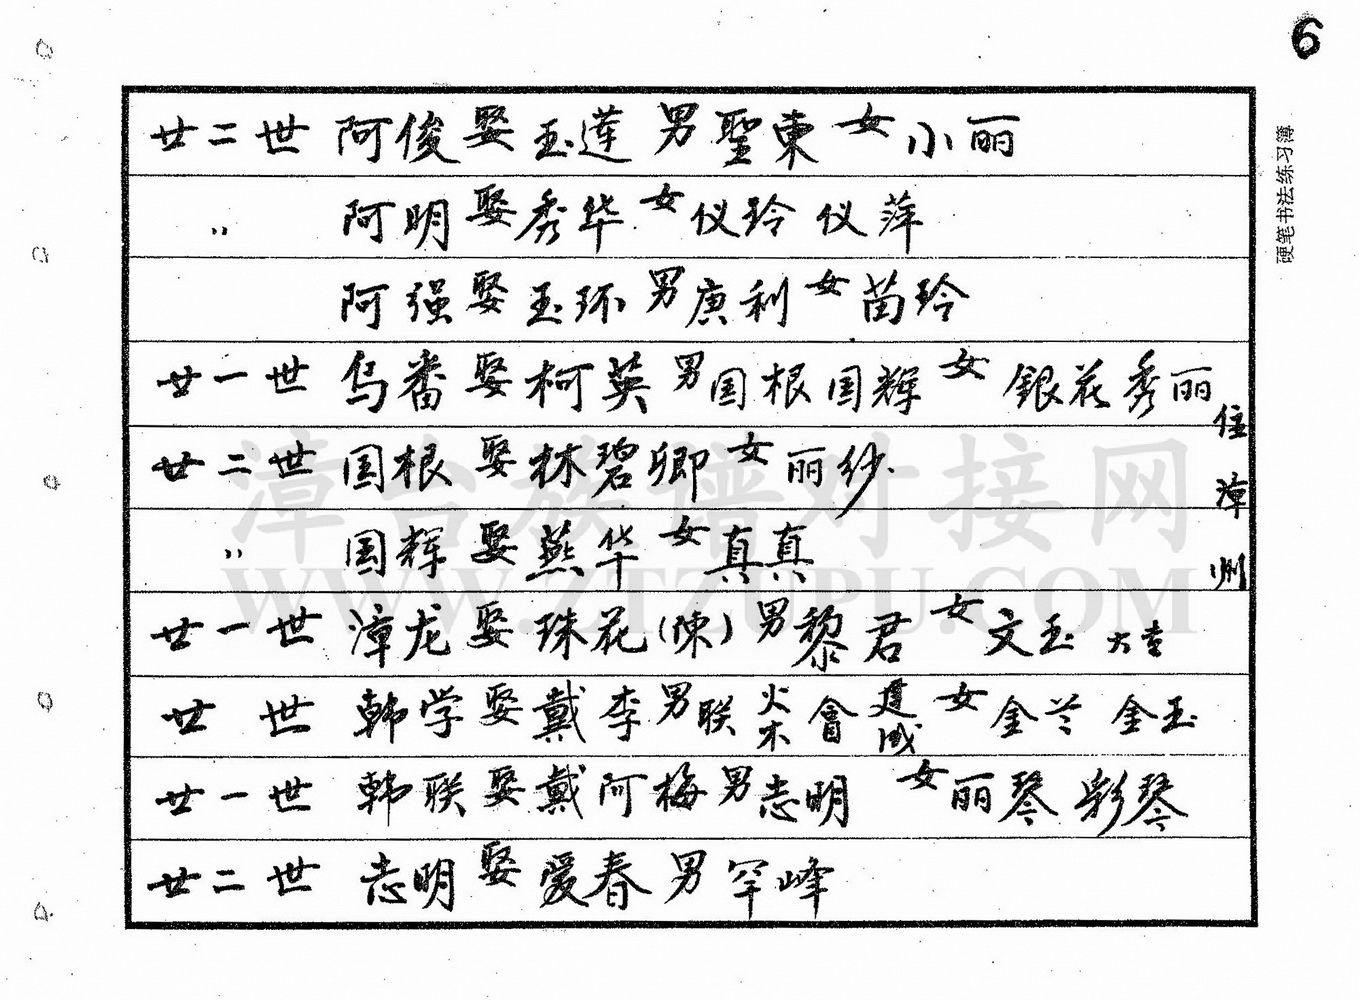 6
硬笔书法练习簿
廿二世 阿俊娶玉莲 男聖東 女小丽
〃 阿明娶秀华 女仪玲 仪萍
阿强娶玉环 男庚利 女苗玲
廿一世 乌番娶柯英 男国根国辉 女銀花秀丽
住漳州
廿二世 国根娶林碧卿 女丽纱
〃 国辉娶燕华 女真真
廿一世 漳龙娶珠花(陳) 男黎君 女文玉
廿世 韩学娶戴李 男联 火木 會 建成 女金兰 金玉
廿一世 韩联娶戴阿梅 男志明 女丽琴 彩琴
廿二世 志明娶爱春 男罕峰
漳台族谱对接网
WWW.ZTZUPU.COM